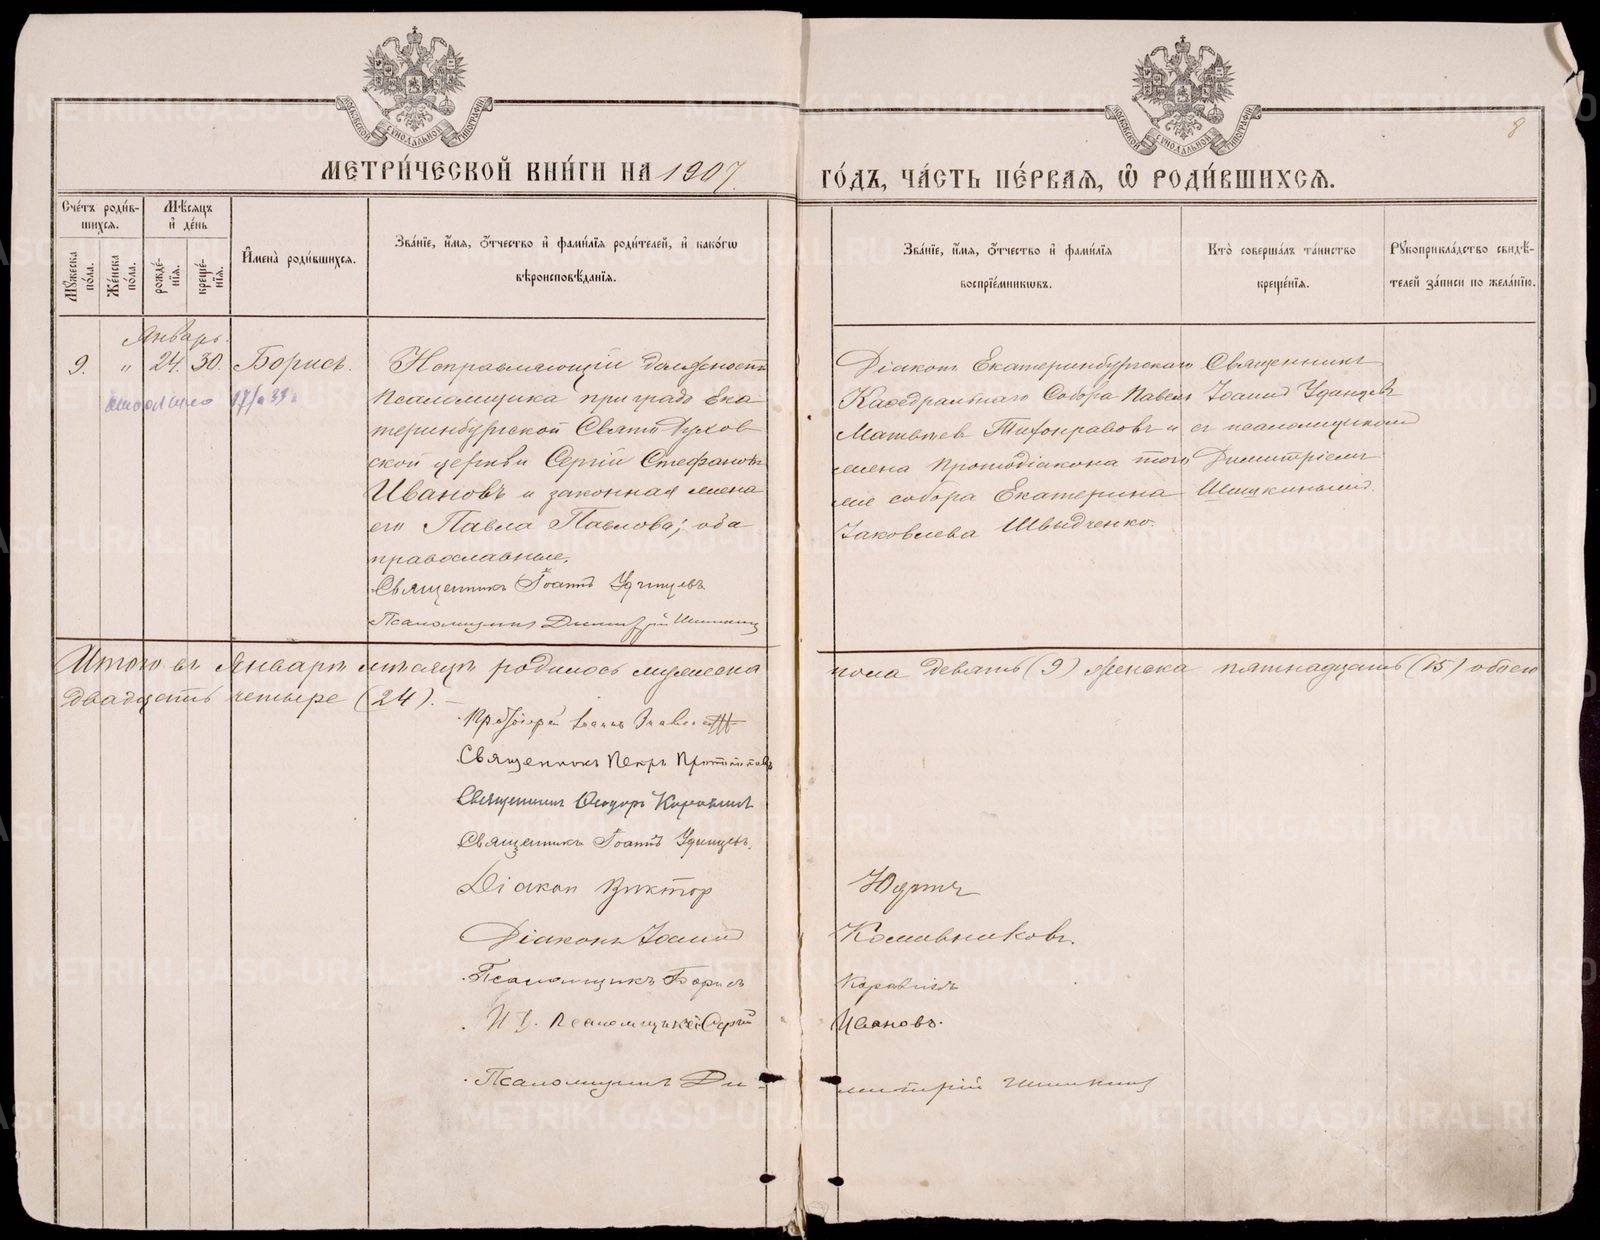 МОСКОВСКОЙ СѴНОДАЛЬНОЙ ТИПОГРАФІИ
МОСКОВСКОЙ СѴНОДАЛЬНОЙ ТИПОГРАФІИ
8
МЕТРИ́ЧЕСКОЙ КНИ́ГИ НА 1907.
ГО́ДЪ, ЧА́СТЬ ПЕ́РВАЯ, Ѡ РОДИ́ВШИХСЯ.
Сче́тъ роди́в-
шихся.
Мѣ́сяцъ
и҆ де́нь
Мꙋ́жеска по́ла.
Же́нска по́ла.
рожде́-
нїя.
креще́-
нїя.
И҆мена̀ роди́вшихся.
Зва́нїе, и҆́мя, ѻ҆́тчество и҆ фами́лїя роди́телей, и҆ како́гѡ
вѣроисповѣ́данїя.
Зва́нїе, и҆́мя, ѻ҆́тчество и҆ фами́лїя
воспрїе́мникѡвъ.
Кто̀ соверша́лъ та́инство
креще́нїя.
Рꙋкоприкла́дство свидѣ́-
телей за́писи по жела́нїю.
Январь.
9. " 24. 30. Борисъ.
17/
Исправляющій должность
псаломщика при градо Ека
теринбургской Свято Духов
ской церкви Сергій Стефановъ
Ивановъ и законная жена
его Павла Павлова; оба
православные.
Священникъ Іоаннъ Удинцевъ
Псаломщикъ Димитрій Шишкинъ
Діаконъ Екатеринбургскаго
Каѳедральнаго Собора Павелъ
Матвѣев Тихонравовъ и
жена протодіакона того
же собора Екатерина
Іаковлева Швидченко.
Священникъ
Іоаннъ Удинцевъ
съ псаломщикомъ
Димитріемъ
Шишкинымъ.
Итого въ Январѣ мѣсяцѣ родилось мужеска пола девять (9) женска пятнадцать (15) обоего
двадцать четыре (24). —
Протоіерей Іоаннъ
Священникъ Петръ
Священникъ Ѳеодоръ Коровинъ
Священникъ Іоаннъ Удинцевъ.
Діакон Виктор Юдинъ
Діаконъ Іоаннъ
Псаломщикъ Борисъ
И. д. псаломщика Сергій Ивановъ.
Псаломщикъ Димитрій Шишкинъ
METRIKI.GASO-URAL.RU